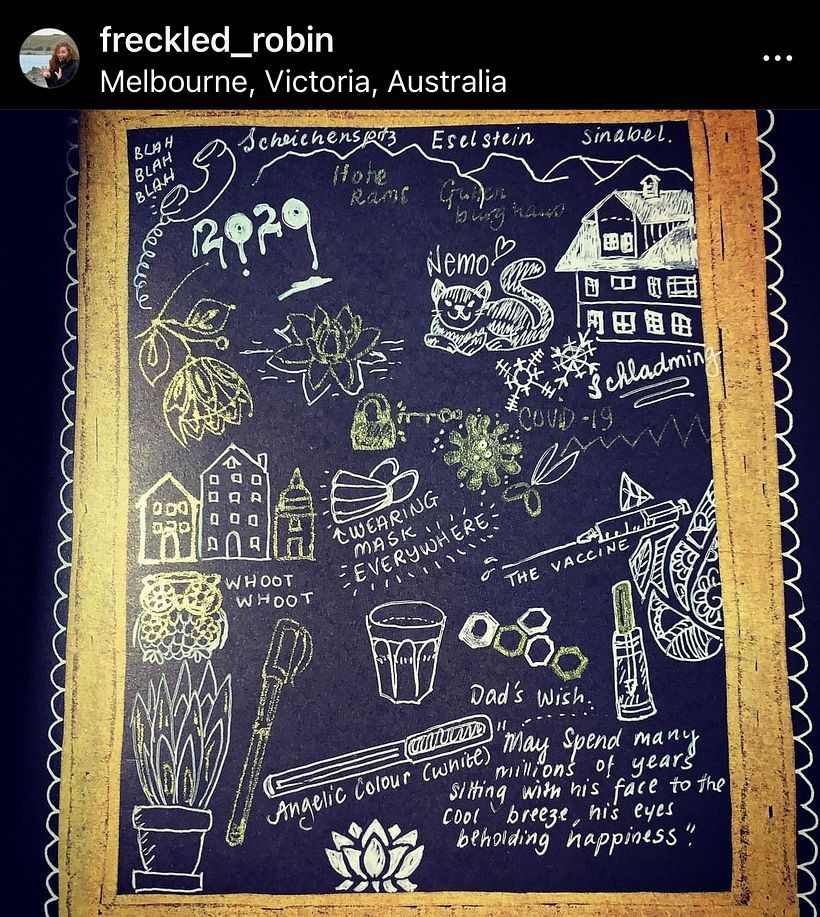 freckled_robin
Melbourne, Victoria, Australia
BLAH
BLAH
BLAH
Scheichenspitz Eselstein Sinabel.
Hohe
Rams
Guten
burg haus
2020
Nemo
Schladming
COVID-19
WEARING
MASK
EVERYWHERE
THE VACCINE
WHOOT
WHOOT
Dad's Wish.
Angelic Colour (white)
"May Spend many
millions of years
Sitting with his face to the
cool breeze, his eyes
beholding happiness".